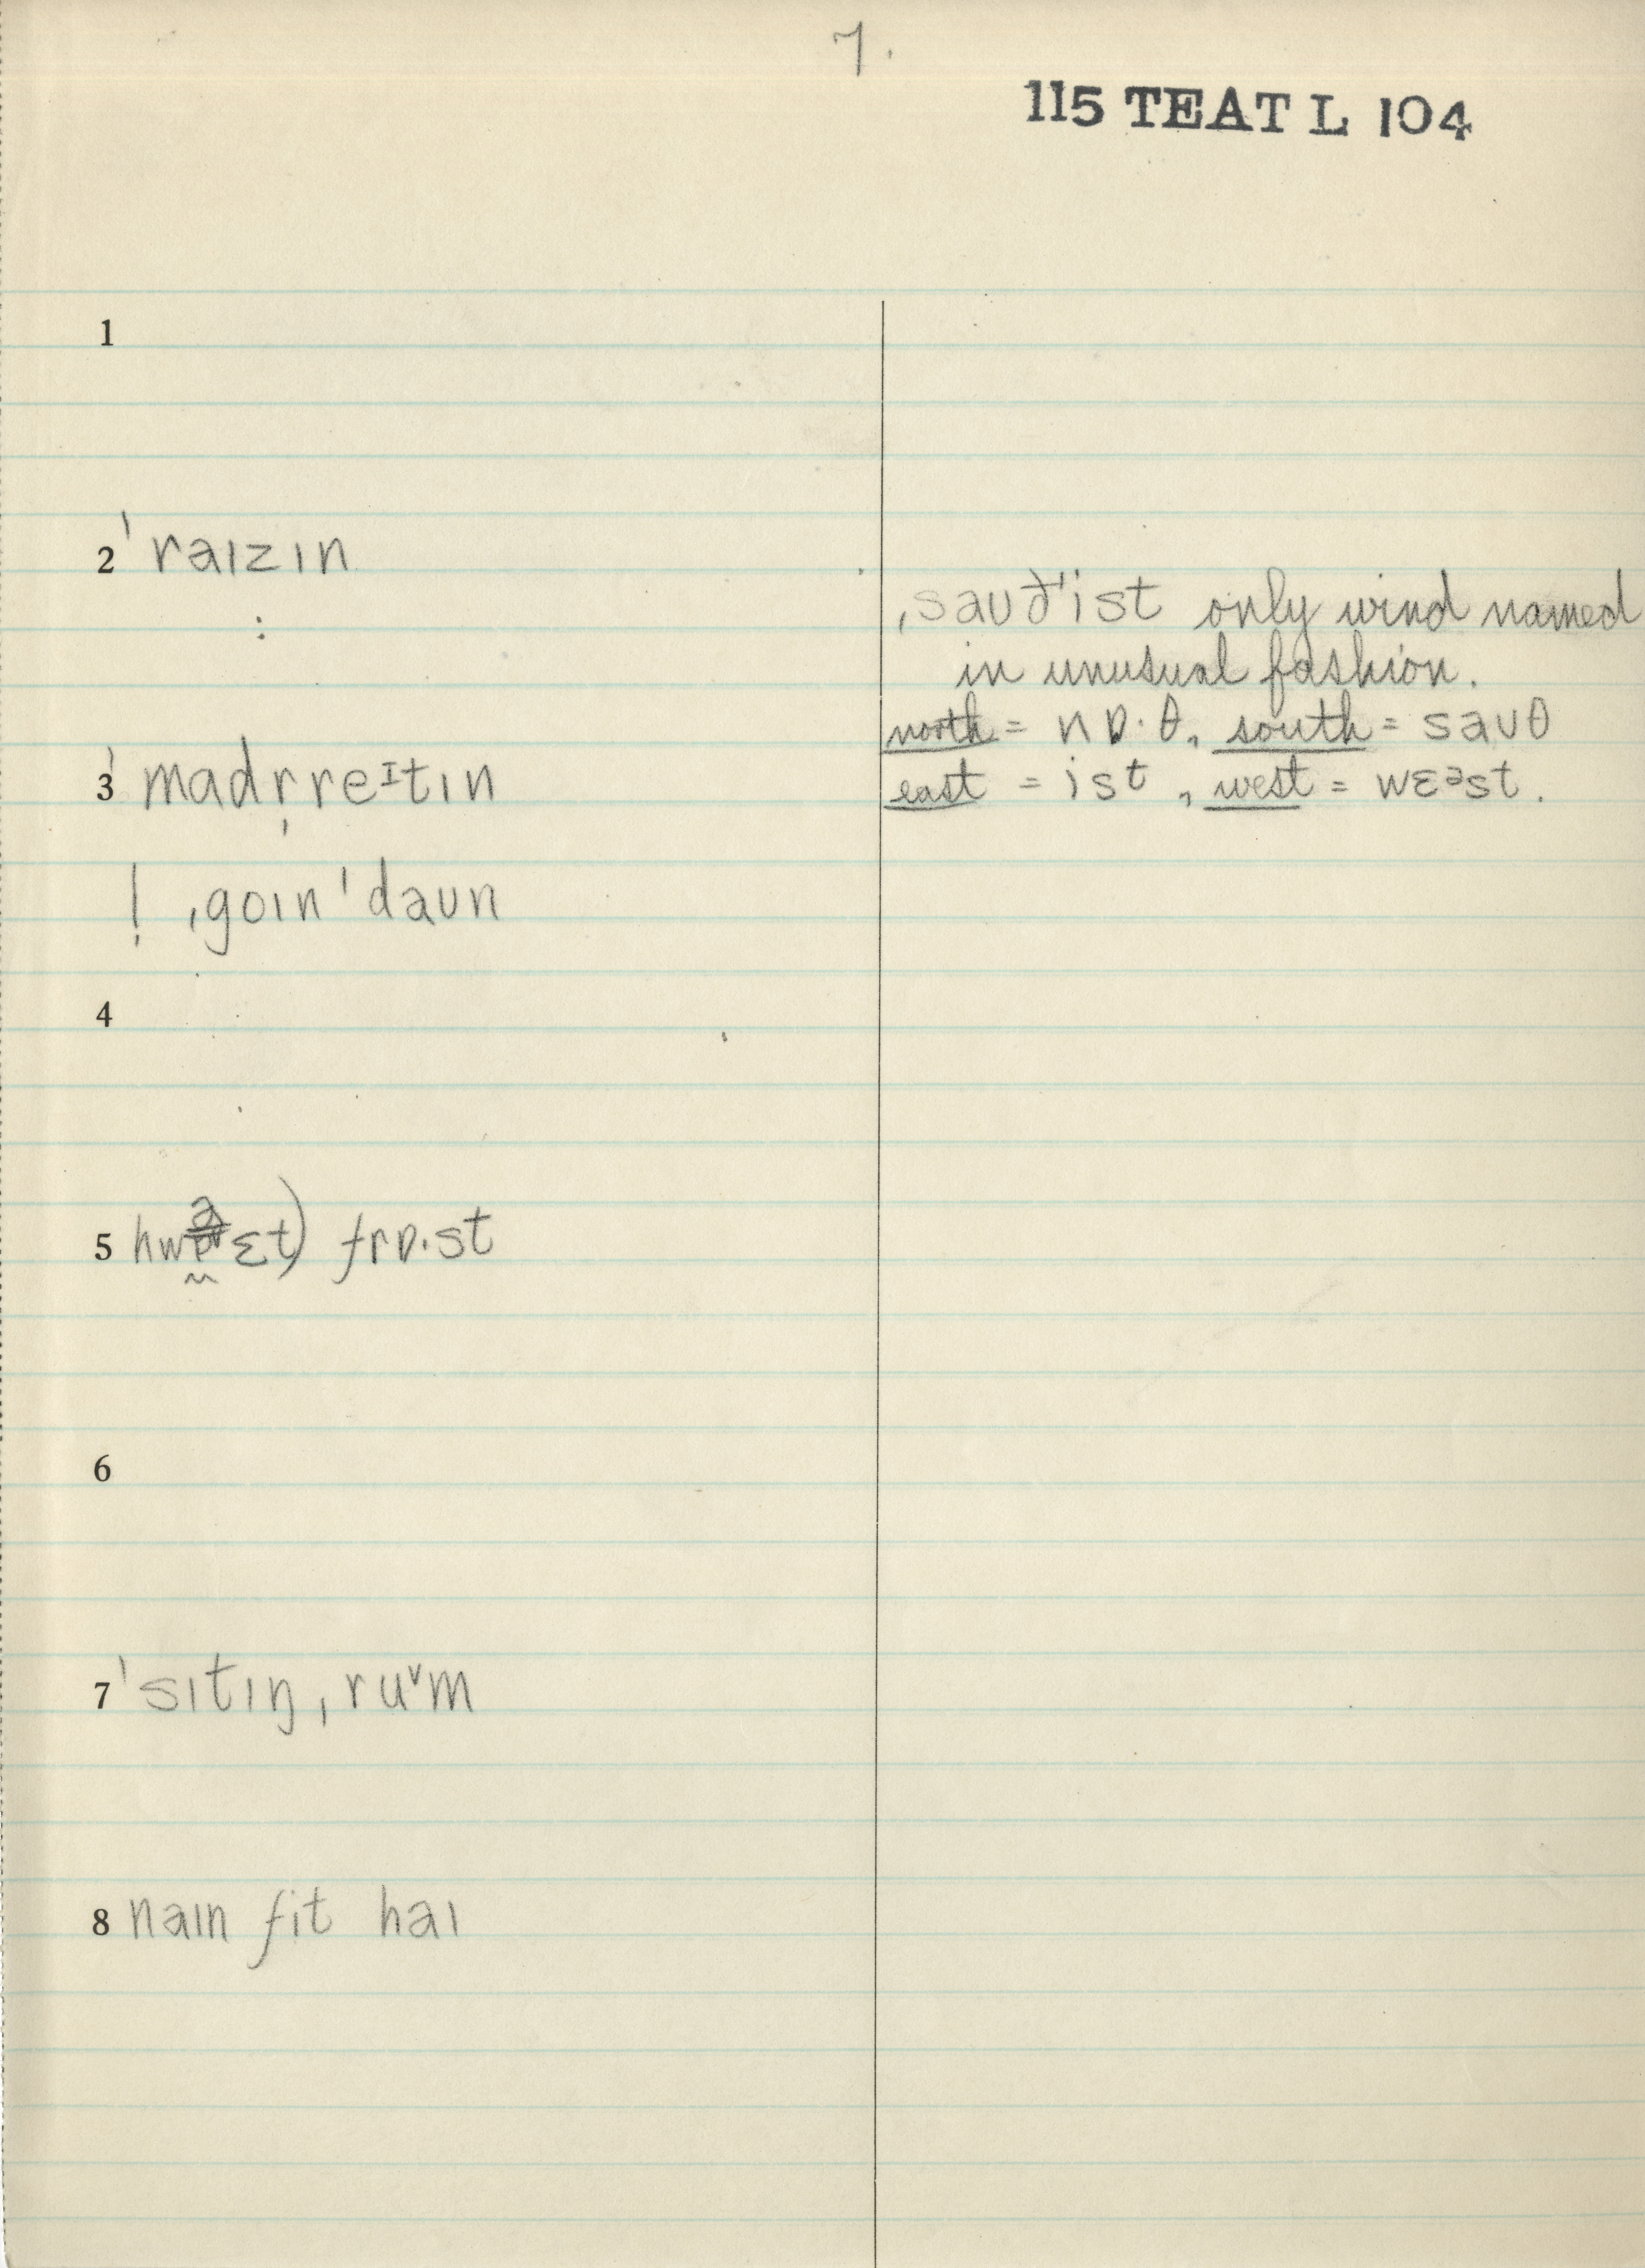 7.
115 TEAT L 104
1
2 ˈraɪzɪn
:
ˌsaʊðˈist only wind named
in unusual fashion.
north = nɒ·θ, south = saʊθ
east = ist, west = wɛᵊst.
3 ˈmadr̩reᶦtɪn
! ˌgoɪn ˈdaʊn
4
5 hwɛt) frɒ·st
6
7 ˈsɪtɪŋˌruᵛm
8 naɪn fit haɪ